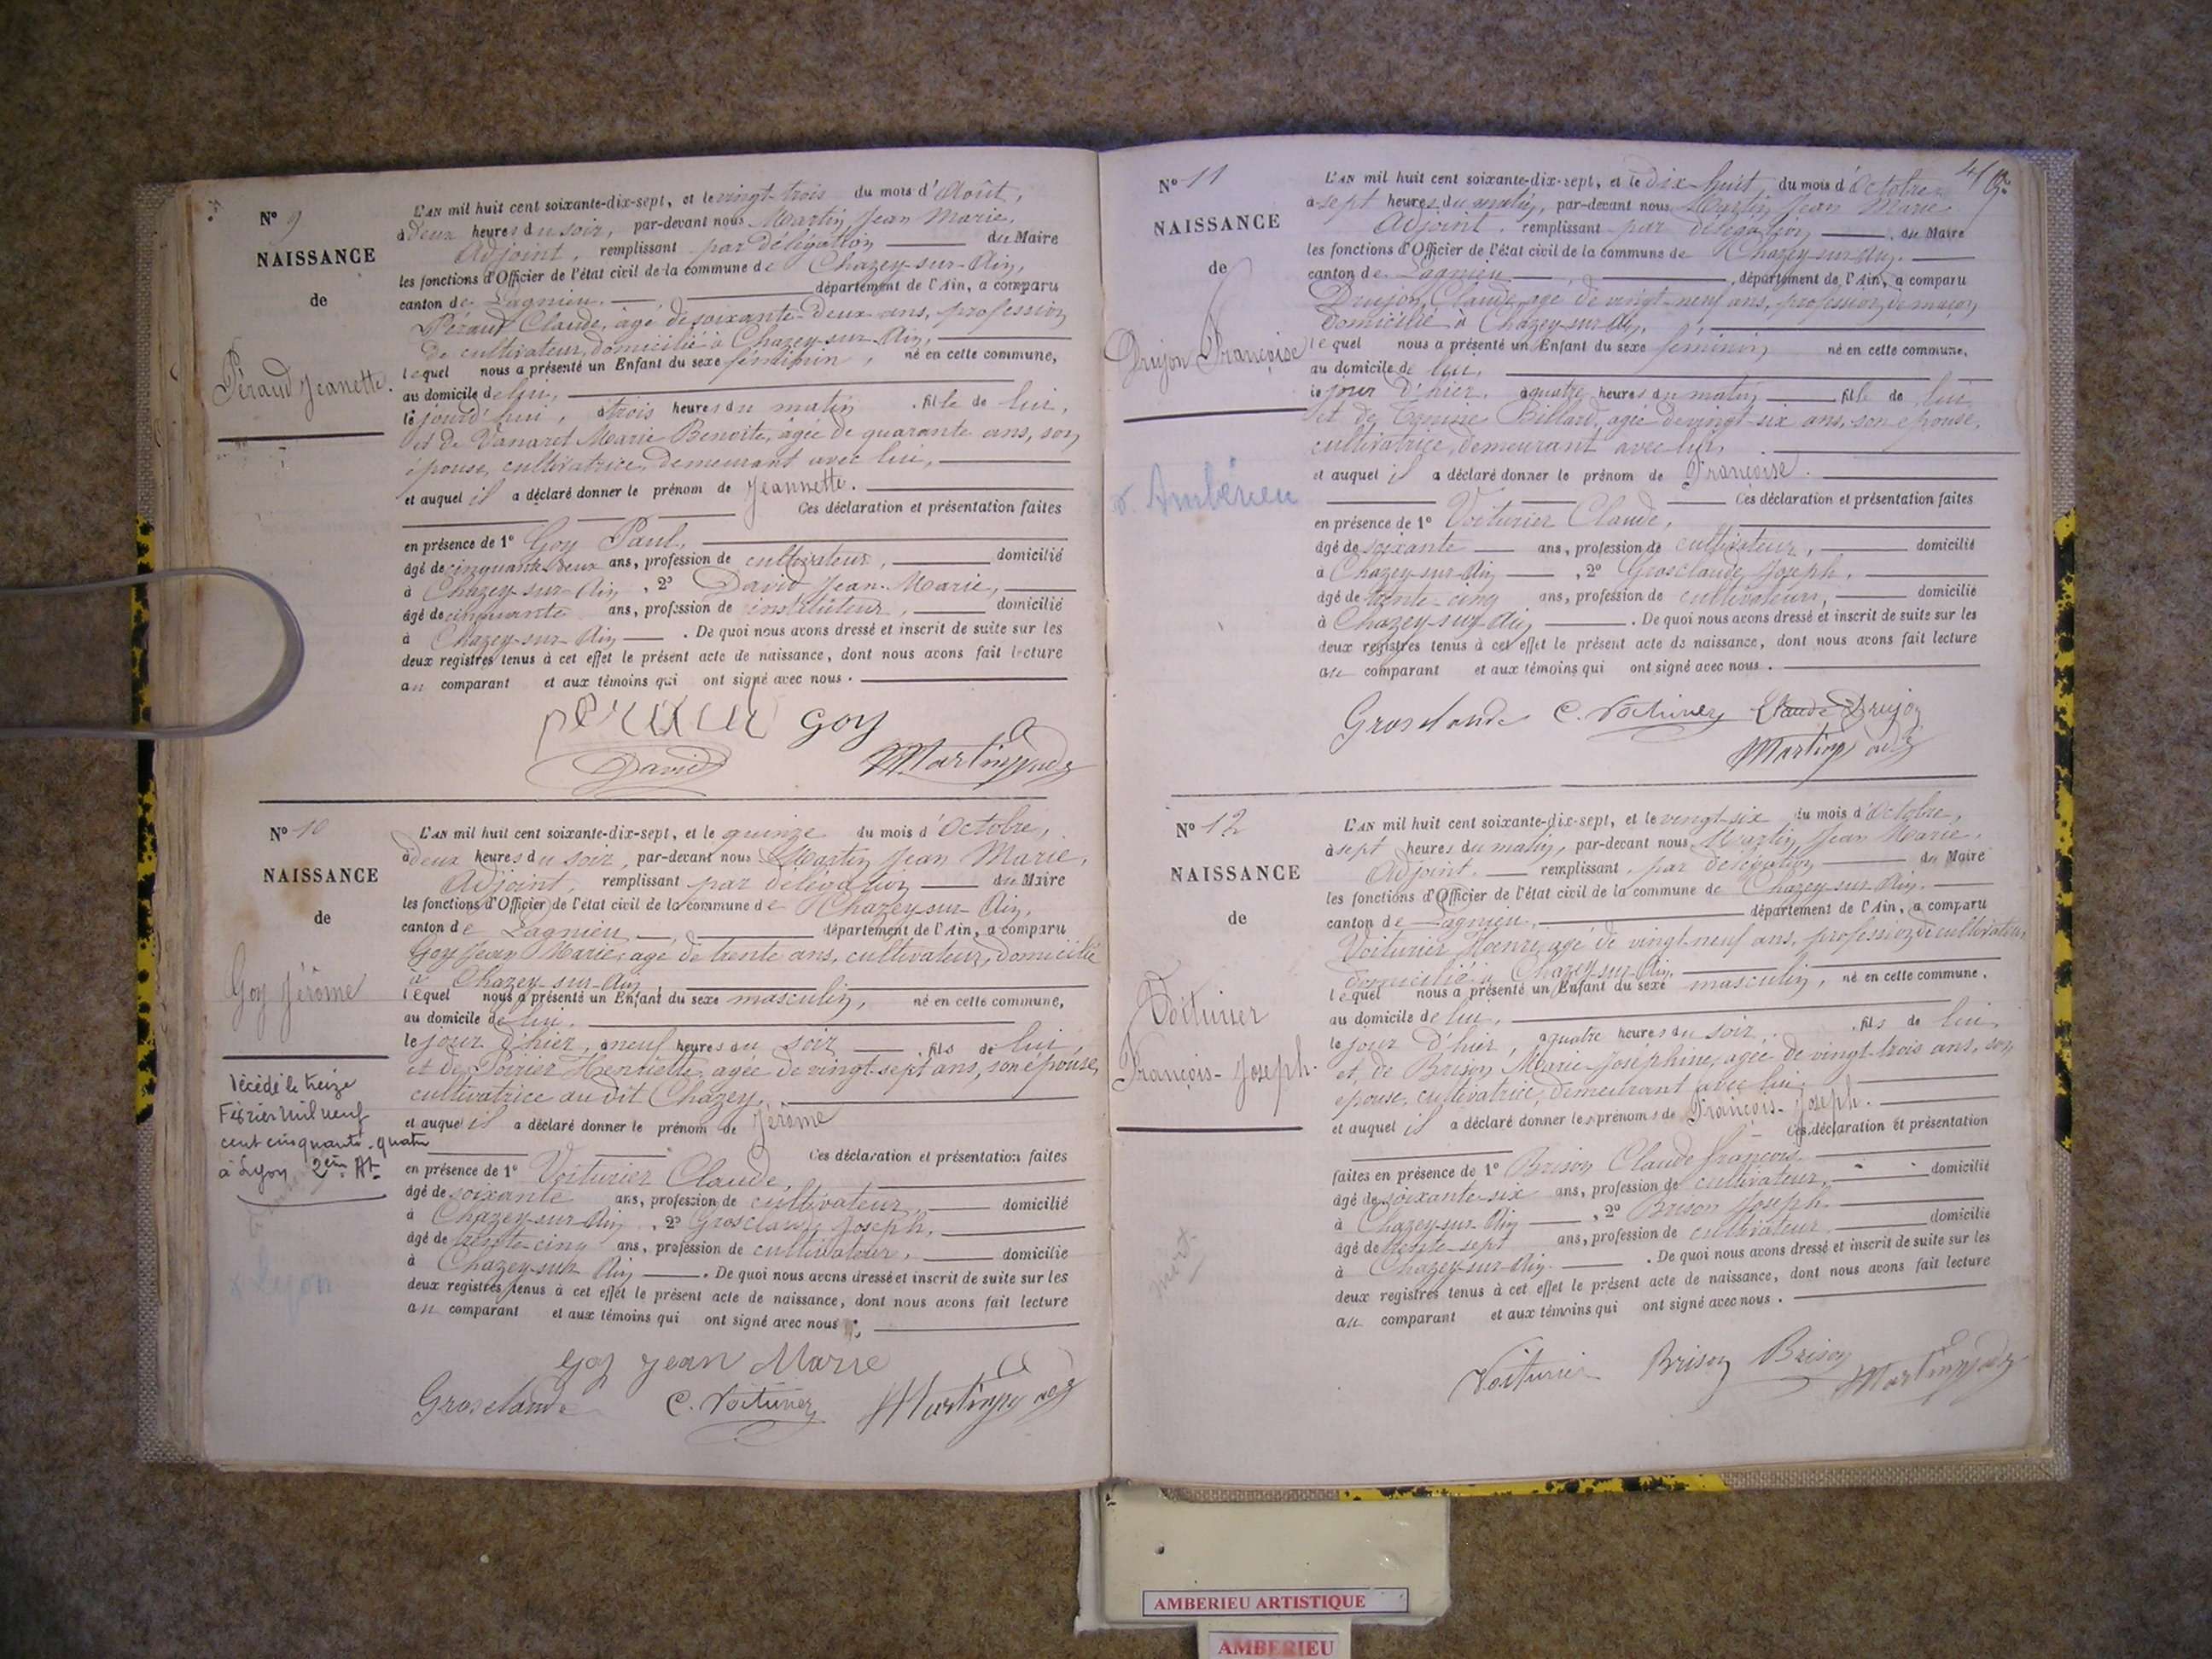 N° 9
NAISSANCE
de
Péraud Jeanette.
L'AN mil huit cent soixante-dix-sept, et le vingt-trois du mois d'Août,
à deux heures du soir, par-devant nous Martin Jean Marie,
Adjoint, remplissant par délégation du Maire
les fonctions d'Officier de l'état civil de la commune de Chazey-sur-Ain,
canton de Lagnieu, département de l'Ain, a comparu
Péraud Claude, âgé de soixante-deux ans, profession
de cultivateur, domicilié à Chazey-sur-Ain,
lequel nous a présenté un Enfant du sexe féminin, né en cette commune,
au domicile de lui,
le jourd'hui, à trois heures du matin, fille de lui,
et de Vanaret Marie Benoite, âgée de quarante ans, son
épouse, cultivatrice, demeurant avec lui,
et auquel il a déclaré donner le prénom de Jeannette.
Ces déclaration et présentation faites
en présence de 1° Goy Paul,
âgé de cinquante-deux ans, profession de cultivateur, domicilié
à Chazey-sur-Ain, 2° David Jean-Marie,
âgé de cinquante ans, profession de instituteur, domicilié
à Chazey-sur-Ain. De quoi nous avons dressé et inscrit de suite sur les
deux registres tenus à cet effet le présent acte de naissance, dont nous avons fait lecture
au comparant et aux témoins qui ont signé avec nous.
péraud Goy
David Martin adj
N° 10
NAISSANCE
de
Goy Jérôme
Décédé le treize
Février mil neuf
cent cinquante-quatre
à Lyon 2em At
x Lyon
L'AN mil huit cent soixante-dix-sept, et le quinze du mois d'Octobre,
à deux heures du soir, par-devant nous Martin Jean Marie,
Adjoint, remplissant par délégation du Maire
les fonctions d'Officier de l'état civil de la commune de Chazey-sur-Ain,
canton de Lagnieu, département de l'Ain, a comparu
Goy Jean Marie, âgé de trente ans, cultivateur, domicilié
à Chazey-sur-Ain
lequel nous a présenté un Enfant du sexe masculin, né en cette commune,
au domicile de lui,
le jour d'hier, à neuf heures du soir, fils de lui,
et de Poirier Henriette, âgée de vingt-sept ans, son épouse,
cultivatrice au dit Chazey,
et auquel il a déclaré donner le prénom de Jérôme
Ces déclaration et présentation faites
en présence de 1° Voiturier Claude,
âgé de soixante ans, profession de cultivateur, domicilié
à Chazey-sur-Ain, 2° Grosclaude Joseph,
âgé de trente-cinq ans, profession de cultivateur, domicilié
à Chazey-sur-Ain. De quoi nous avons dressé et inscrit de suite sur les
deux registres tenus à cet effet le présent acte de naissance, dont nous avons fait lecture
au comparant et aux témoins qui ont signé avec nous.
Goy Jean Marie
Grosclaude C. Voiturier Martin adj
N° 11
NAISSANCE
de
Drujon Françoise
Ambérieu
L'AN mil huit cent soixante-dix-sept, et le dix-huit du mois d'Octobre
à sept heures du matin, par-devant nous Martin Jean Marie
Adjoint, remplissant par délégation du Maire
les fonctions d'Officier de l'état civil de la commune de Chazey-sur-Ain.
canton de Lagnieu, département de l'Ain, a comparu
Drujon Claude, âgé de vingt-neuf ans, profession de maçon
domicilié à Chazey-sur-Ain,
lequel nous a présenté un Enfant du sexe féminin né en cette commune,
au domicile de lui,
le jour d'hier, à quatre heures du matin fille de lui
et de Billard, âgée de vingt-six ans, son épouse,
cultivatrice, demeurant avec lui
et auquel il a déclaré donner le prénom de Françoise.
Ces déclaration et présentation faites
en présence de 1° Voiturier Claude,
âgé de soixante ans, profession de cultivateur, domicilié
à Chazey-sur-Ain, 2° Grosclaude Joseph,
âgé de trente-cinq ans, profession de cultivateur, domicilié
à Chazey-sur-Ain. De quoi nous avons dressé et inscrit de suite sur les
deux registres tenus à cet effet le présent acte de naissance, dont nous avons fait lecture
au comparant et aux témoins qui ont signé avec nous.
Grosclaude C. Voiturier Claude Drujon
Martin adj
N° 12
NAISSANCE
de
Voiturier
François-Joseph.
mort
L'AN mil huit cent soixante-dix-sept, et le vingt-six du mois d'Octobre,
à sept heures du matin, par-devant nous Martin Jean Marie,
Adjoint, remplissant par délégation du Maire
les fonctions d'Officier de l'état civil de la commune de Chazey-sur-Ain.
canton de Lagnieu, département de l'Ain, a comparu
Voiturier Henri, âgé de vingt-neuf ans, profession de cultivateur
domicilié à Chazey-sur-Ain,
lequel nous a présenté un Enfant du sexe masculin, né en cette commune,
au domicile de lui,
le jour d'hier, à quatre heures du soir, fils de lui
et de Brison Marie Joséphine, âgée de vingt-trois ans, son
épouse, cultivatrice, demeurant avec lui,
et auquel il a déclaré donner les prénoms de François-Joseph.
Ces déclaration et présentation
faites en présence de 1° Brison Claude François
âgé de soixante-six ans, profession de cultivateur, domicilié
à Chazey-sur-Ain, 2° Brison Joseph
âgé de trente-sept ans, profession de cultivateur domicilié
à Chazey-sur-Ain. De quoi nous avons dressé et inscrit de suite sur les
deux registres tenus à cet effet le présent acte de naissance, dont nous avons fait lecture
au comparant et aux témoins qui ont signé avec nous.
Voiturier Brison Brison Martin adj
AMBERIEU ARTISTIQUE
AMBERIEU